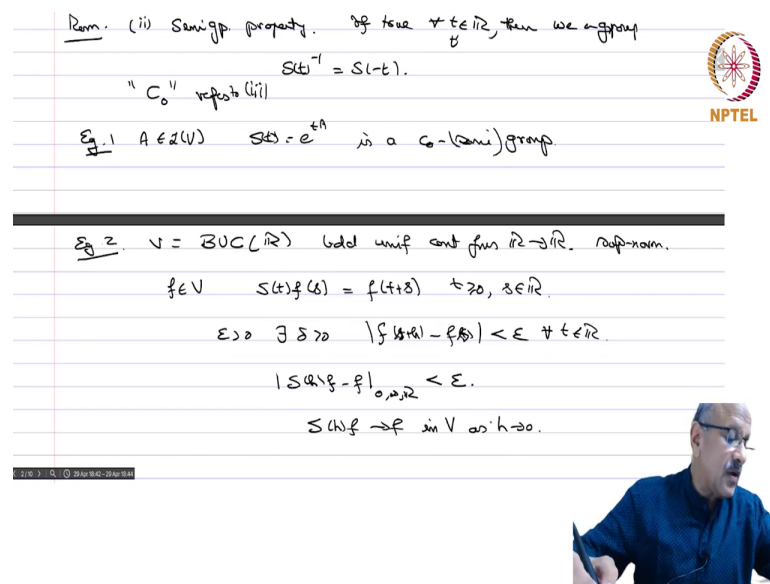 Rem. (ii) Semigp. property. If true ∀ t∈ℝ, then we a group
S(t)⁻¹ = S(-t).
"C₀" refers to (iii)
Eg.1 A ∈ L(V) S(t) = e^{tA} is a C₀-(semi)group.
Eg 2. V = BUC(ℝ) bdd unif cont fns ℝ→ℝ. sup-norm.
f∈V S(t)f(s) = f(t+s) t≥0, s∈ℝ.
ε>0 ∃ δ>0 |f(s+h) - f(s)| < ε ∀ t∈ℝ.
|S(h)f - f|₀,∞,ℝ < ε.
S(h)f → f in V as h→0.
NPTEL
2/10 29 Apr 18:42-29 Apr 18:44